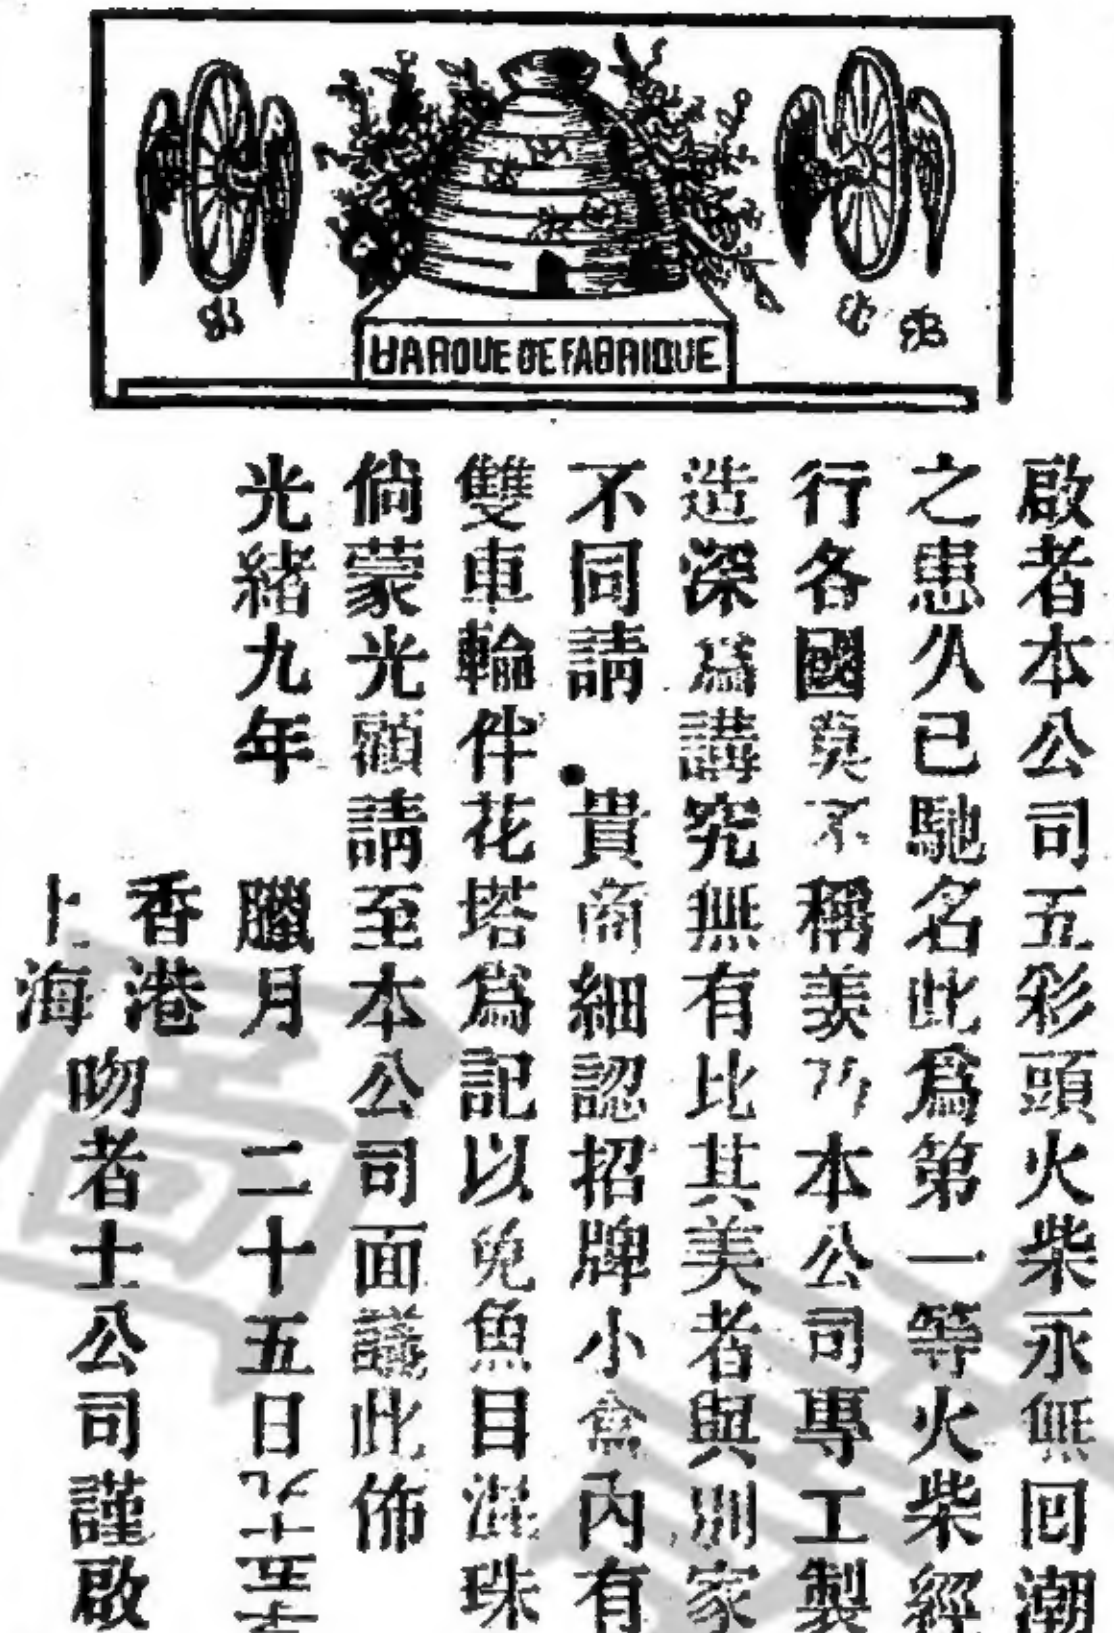 MARQUE DE FABRIQUE
啟者本公司五彩頭火柴永無回潮
之患久已馳名此為第一等火柴經
行各國莫不稱羨乃本公司專工製
造深為講究無有比其美者與別家
不同請 貴商細認招牌小盒內有
雙車輪伴花塔為記以免魚目混珠
倘蒙光顧請至本公司面議此佈
光緒九年 臘月 二十五日
香港
上海
吻者士公司謹啟